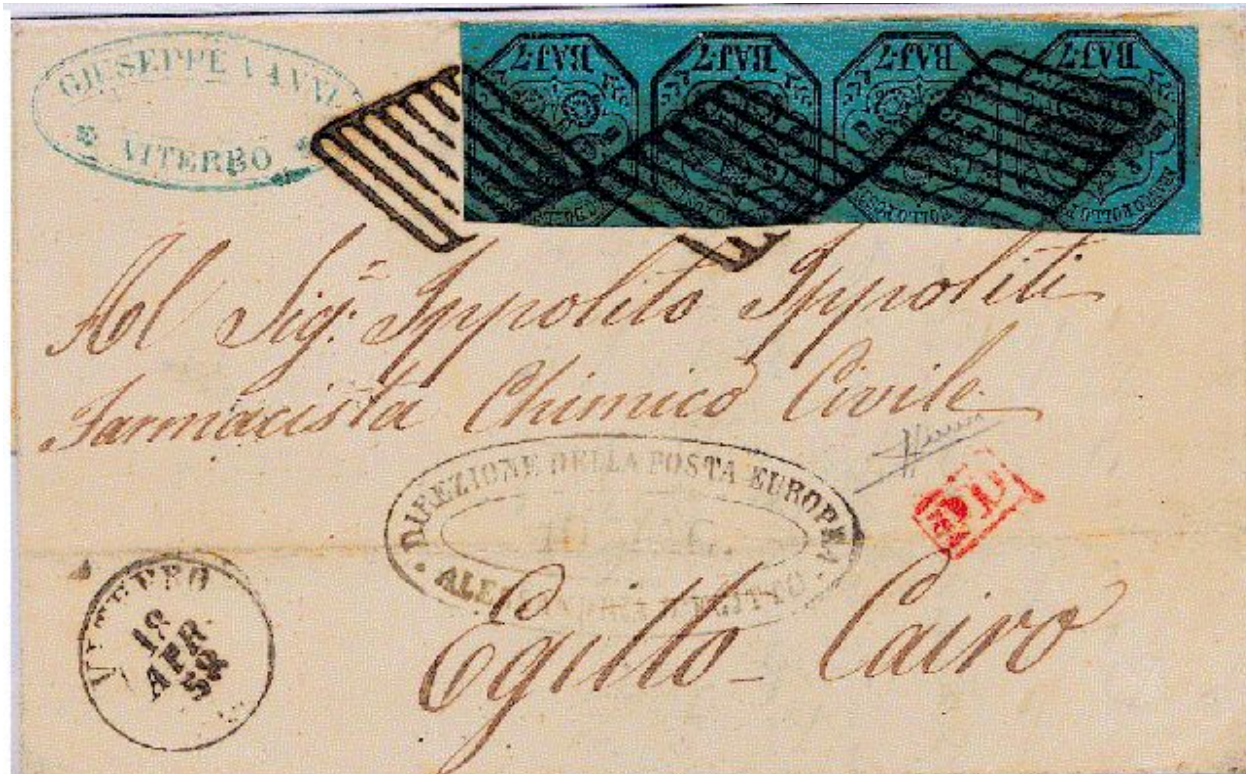 GIUSEPPE VANNI
VITERBO
BAJ 7 BAJ 7 BAJ 7 BAJ 7
Al Sig.r Ippolito Ippoliti
Farmacista Chimico Civile
DIREZIONE DELLA POSTA EUROPEA
ALESSANDRIA D'EGITTO
PD
Egitto - Cairo
VITERBO
APR